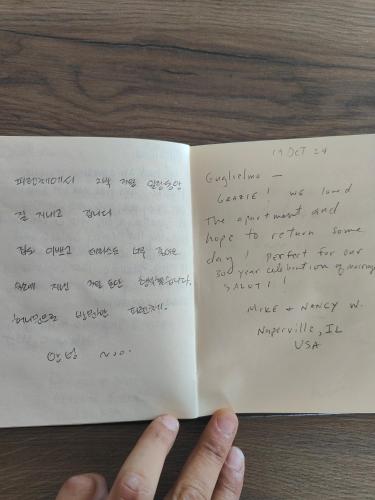 피렌체에서 2박 3일 일정동안
잘 지내고 갑니다
집도 이쁘고 테라스도 너무 좋아요
지낸 동안 행복했습니다.
피렌체.
안녕
19 OCT 24
Guglielmo —
GRAZIE! We loved
The apartment and
hope to return some
day! Perfect for our
30 year celebration of marriage
SALUTI!
MIKE + NANCY W.
Naperville, IL
USA